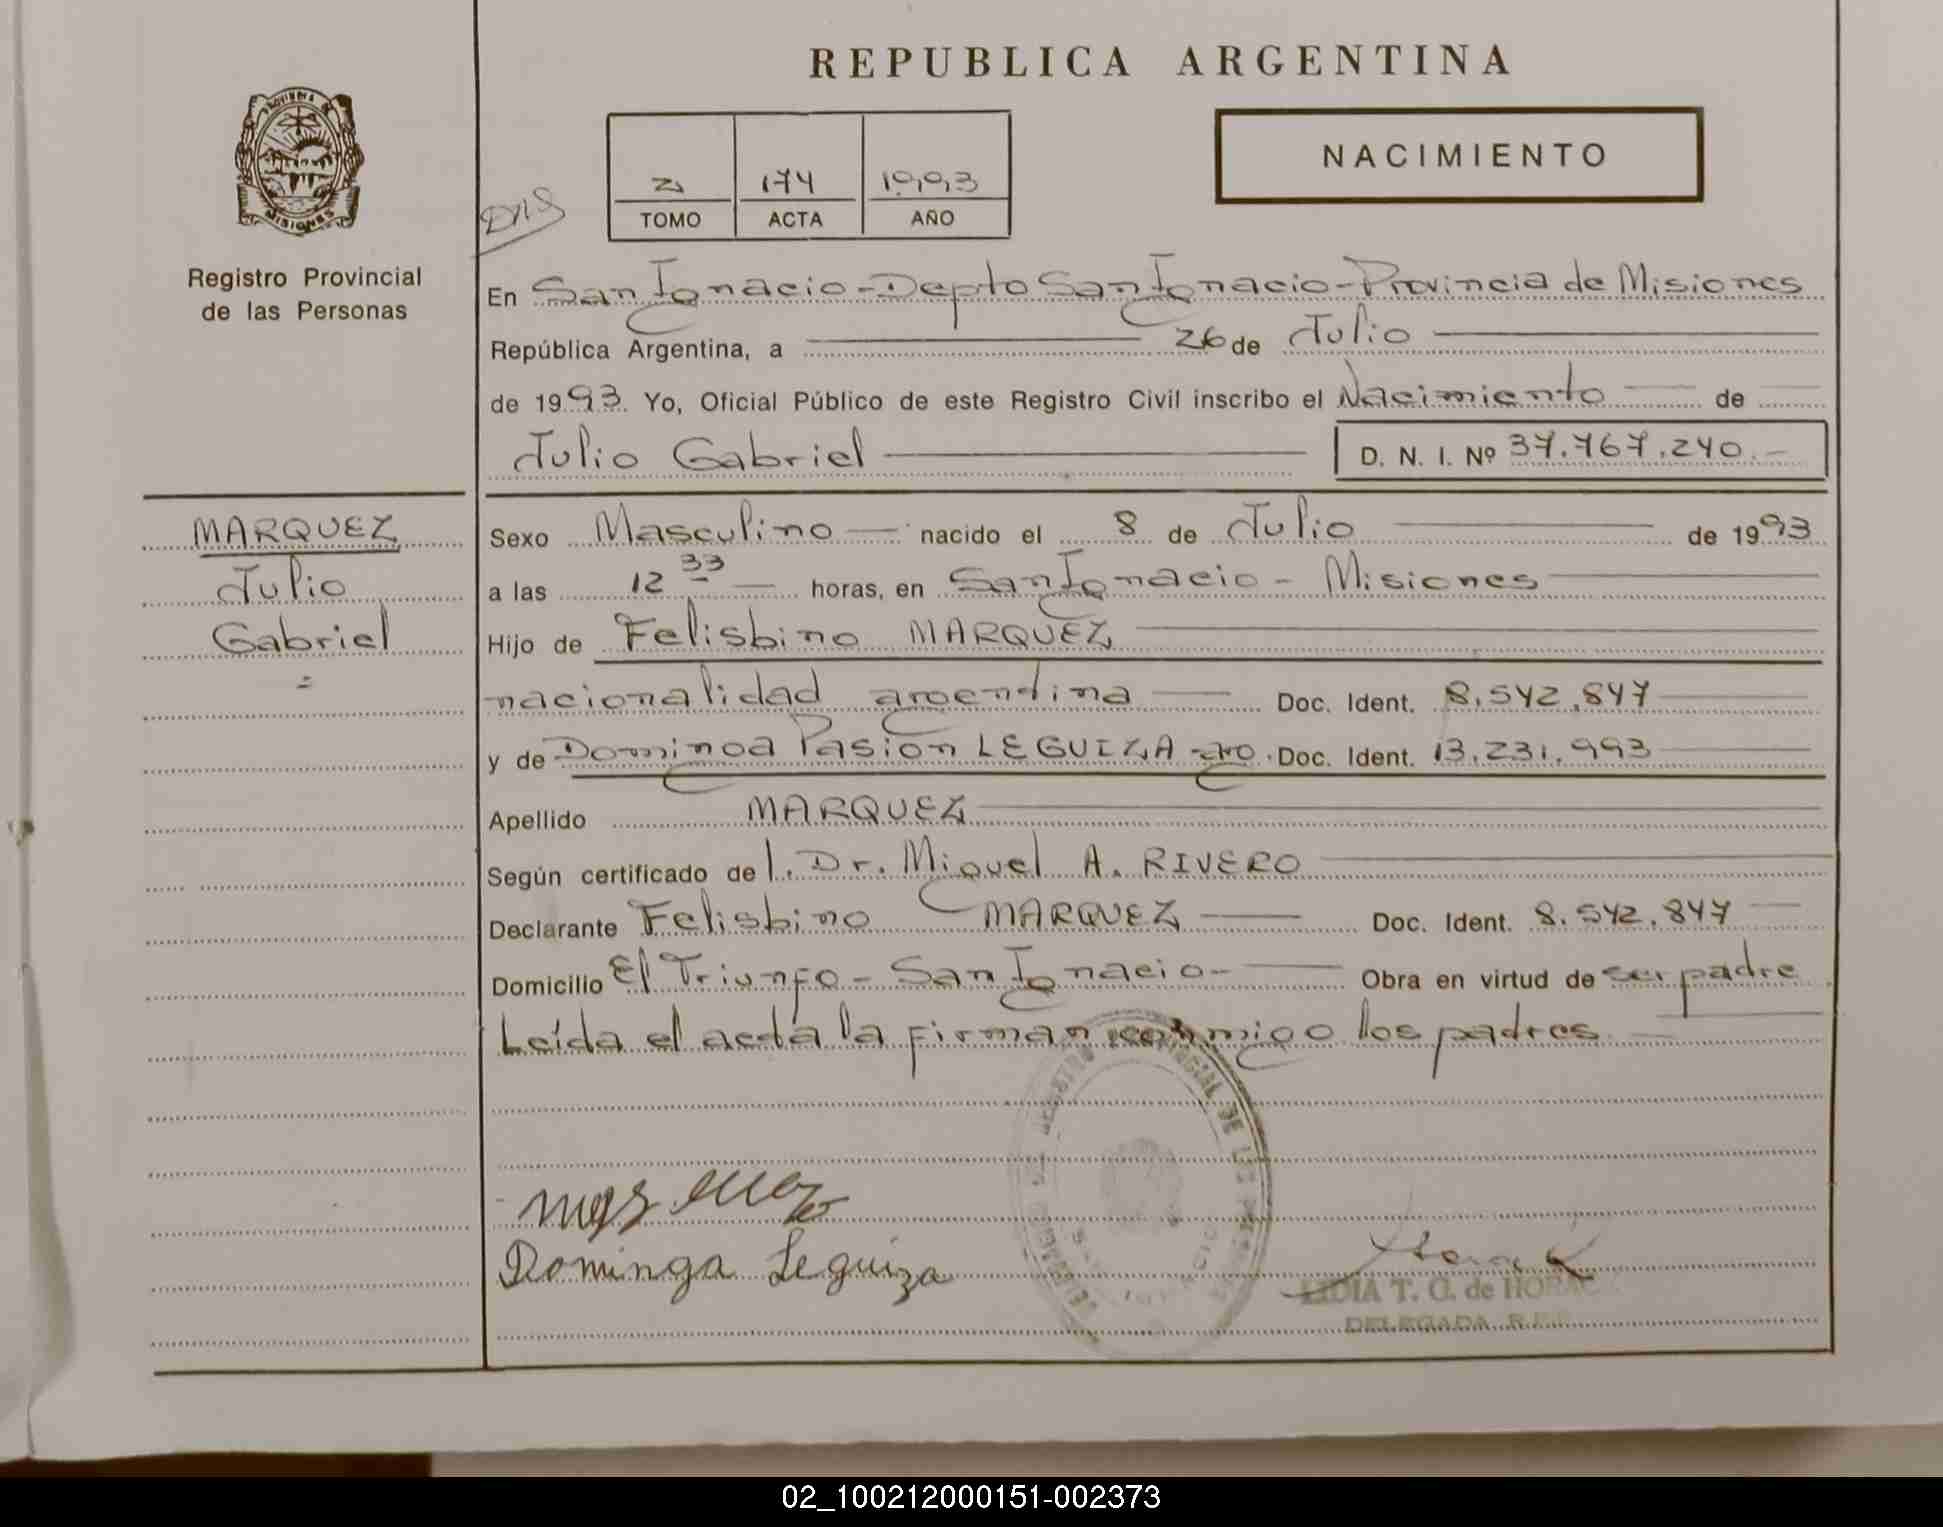 REPUBLICA ARGENTINA
PROVINCIA DE
MISIONES
Registro Provincial
de las Personas
2 174 1993
TOMO ACTA AÑO
NACIMIENTO
En San Ignacio-Depto San Ignacio-Provincia de Misiones
República Argentina, a 26 de Julio
de 1993. Yo, Oficial Público de este Registro Civil inscribo el Nacimiento de
Julio Gabriel D. N. I. Nº 37.767.240.-
MARQUEZ
Julio
Gabriel
Sexo Masculino nacido el 8 de Julio de 1993
a las 12 33 horas, en San Ignacio - Misiones
Hijo de Felisbino MARQUEZ
nacionalidad argentina Doc. Ident. 8.542.847
y de Dominga Pasión LEGUIZA Doc. Ident. 13.231.993
Apellido MARQUEZ
Según certificado de l. Dr. Miguel A. RIVERO
Declarante Felisbino MARQUEZ Doc. Ident. 8.542.847
Domicilio El Triunfo - San Ignacio - Obra en virtud de ser padre
Leída el acta la firman conmigo los padres
Dominga Leguiza
LIDIA T. G. de HORAC
DELEGADA R.P.P.
02_100212000151-002373